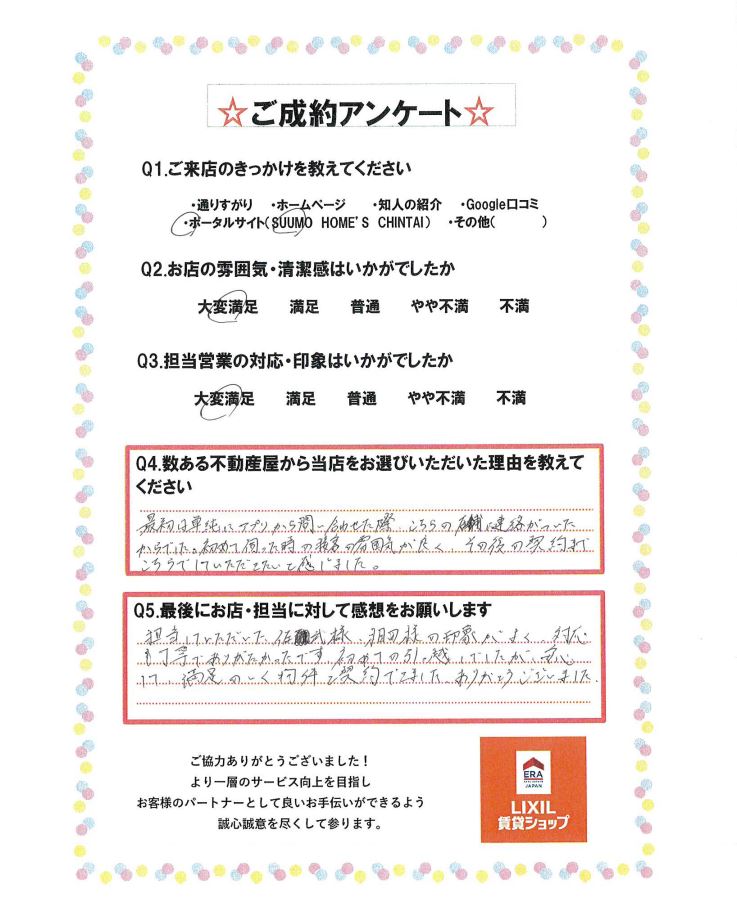 ☆ご成約アンケート☆
Q1.ご来店のきっかけを教えてください
・通りすがり ・ホームページ ・知人の紹介 ・Google口コミ
・ポータルサイト(SUUMO HOME'S CHINTAI) ・その他( )
Q2.お店の雰囲気・清潔感はいかがでしたか
大変満足 満足 普通 やや不満 不満
Q3.担当営業の対応・印象はいかがでしたか
大変満足 満足 普通 やや不満 不満
Q4.数ある不動産屋から当店をお選びいただいた理由を教えて
ください
最初は単純にアプリから問い合わせた際、こちらの店舗に連絡がついた
からでした。初めて伺った時の接客の雰囲気が良く、その後の契約まで
こちらでしていただきたいと感じました。
Q5.最後にお店・担当に対して感想をお願いします
担当していただいた佐 様、羽田様の印象がよく、対応
も丁寧でありがたかったです。初めての引っ越しでしたが、安心
して、満足のいく物件で契約できました。ありがとうございました。
ご協力ありがとうございました！
より一層のサービス向上を目指し
お客様のパートナーとして良いお手伝いができるよう
誠心誠意を尽くして参ります。
ERA
JAPAN
LIXIL
賃貸ショップ